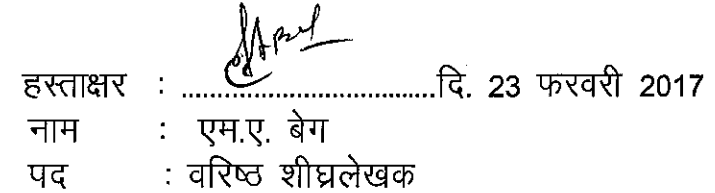 हस्ताक्षर : ..................................दि. 23 फरवरी 2017
नाम : एम.ए. बेग
पद : वरिष्ठ शीघ्रलेखक